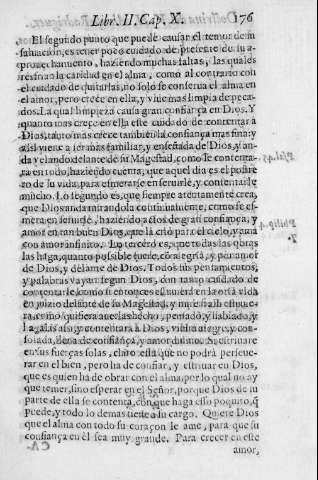 Libr. II. Cap. X. 176
El segundo punto que puede causar el temor de su
saluacion, es tener poco cuidado de presente de su a-
prouechamiento, haziendo muchas faltas, las quales
resfrian la caridad en el alma, como al contrario con
el cuidado de quitarlas, no solo se conserua el alma en
el amor, pero crece en ella, y viue mas limpia de peca-
dos. La qual limpieza causa gran confiança en Dios. Y
quanto mas crece en ella este cuidado de contentar à
Dios, tanto mas crece tambien la confiança mas fina: y
assi viene a ser mas familiar, y enseñada de Dios, y an-
da velando delante de su Magestad, como le contenta-
ra en todo, haziendo cuenta, que aquel dia es el postre
ro de su vida, para esmerarse en seruirle, y contentarle
mucho. Lo segundo es, que siempre atentamente crea,
que Dios anda mirandola continuamente, como se es-
mera en seruirle, haziendo actos de gran confiança, y
amor en tan buen Dios, que la criò para el cielo, y ama
con amor infinito. Lo tercero es, que todas las obras
las haga, quanto possible fuere, con alegria, y por amor
de Dios, y delante de Dios. Todos sus pensamientos,
y palabras vayan segun Dios, con tanto cuidado de
contentarle, como si entonces estuuiera en la otra vida
en juizio delante de su Magestad, y
ra, como quisiera auerlas hecho, pensado, y hablado, y
hagalas assi, y contentarà à Dios, y viuirà alegre, y con-
solada, llena de confiança, y amor diuino. Si estriuare
en sus fuerças solas, claro està que no podrà perseue-
rar en el bien, pero ha de confiar, y estriuar en Dios,
que es quien ha de obrar con el alma, por lo qual no ay
que temer, sino esperar en el Señor, porque Dios de su
parte de ella se contenta, con que haga esso poquito, q̃
puede, y todo lo demas tiene a su cargo. Quiere Dios
que el alma con todo su coraçon le ame, para que su
confiança en èl sea muy grande. Para crecer en este
amor,